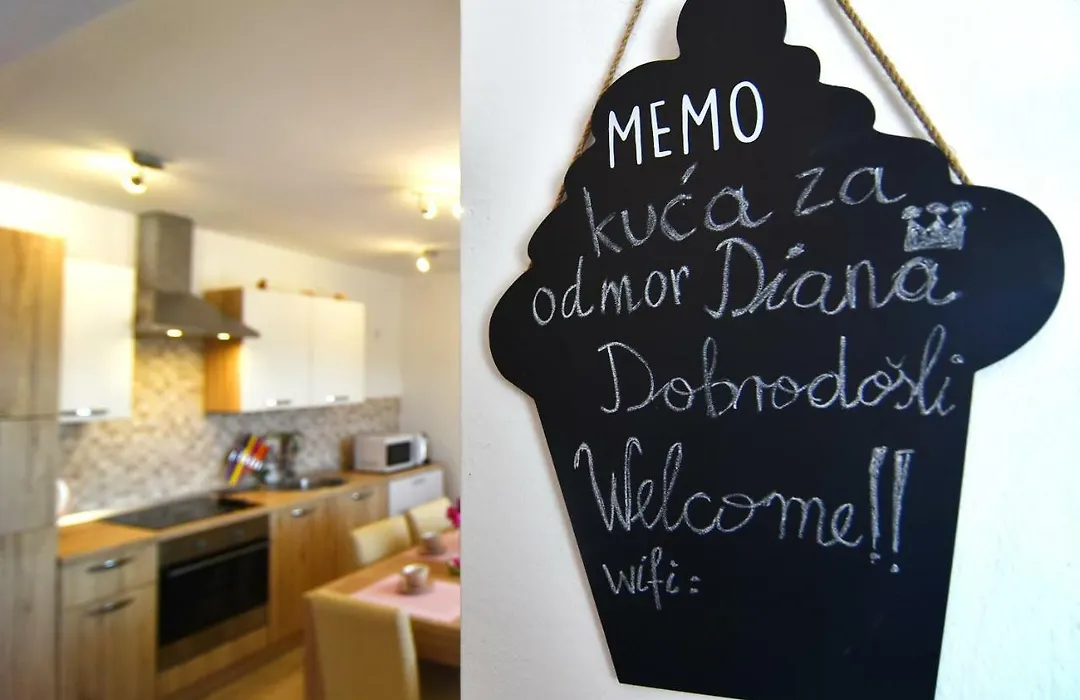 MEMO
kuća za
odmor Diana
Dobrodošli
Welcome!!
wifi: